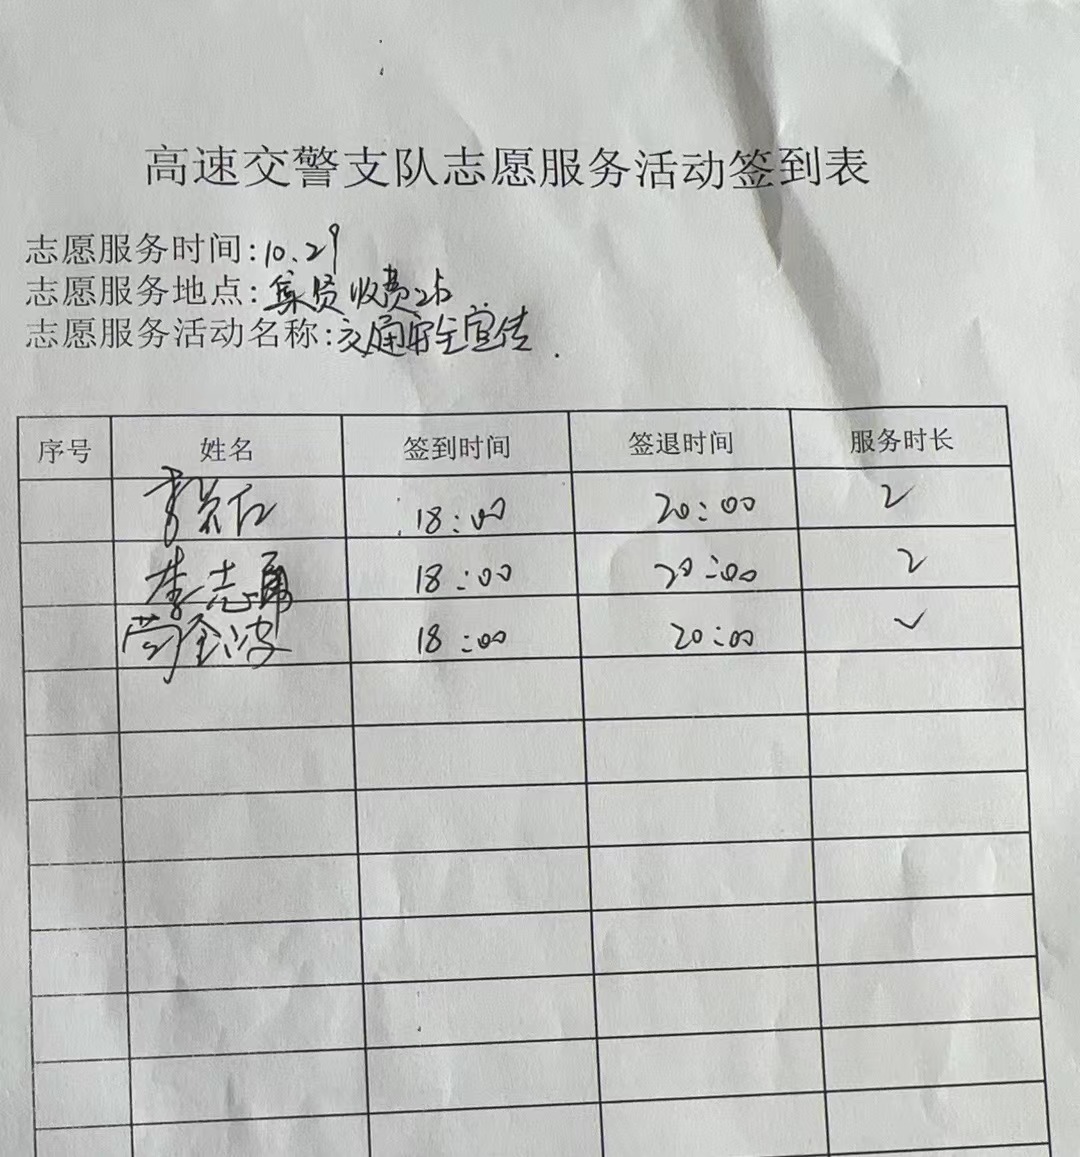 高速交警支队志愿服务活动签到表
志愿服务时间:10.29
志愿服务地点:集贤收费站
志愿服务活动名称:交通安全宣传.
序号 姓名 签到时间 签退时间 服务时长
18:00 20:00 2
李志勇 18:00 20:00 2
18:00 20:00